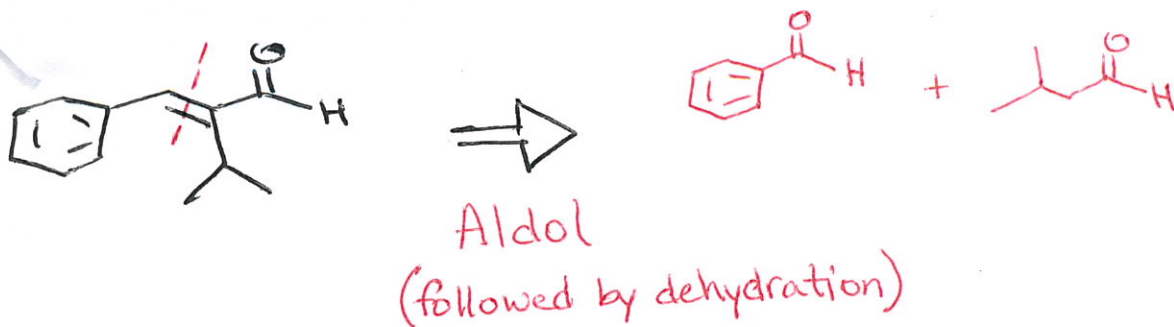 O
O
O
H
H
+
H
Aldol
(followed by dehydration)